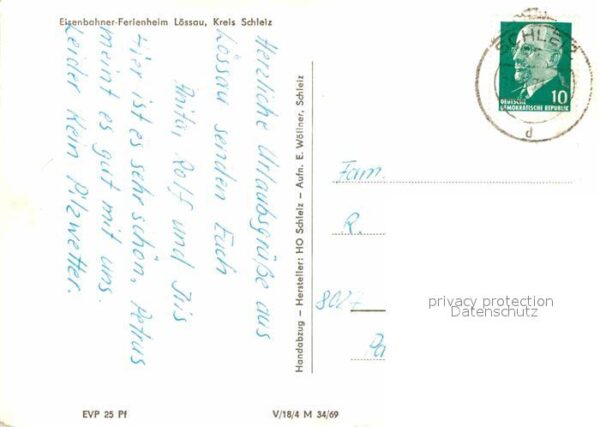 Eisenbahner-Ferienheim Lössau, Kreis Schleiz
Herzliche Urlaubsgrüße aus
Lössau senden Euch
Anita, Rolf und Iris
Hier ist es sehr schön, Petrus
meint es gut mit uns.
Leider kein Pilzwetter.
Handabzug – Hersteller: HO Schleiz – Aufn. E. Wöllner, Schleiz
SCHLEIZ
d
10
DEUTSCHE
DEMOKRATISCHE REPUBLIK
Fam.
R.
8027
privacy protection
Datenschutz
EVP 25 Pf
V/18/4 M 34/69